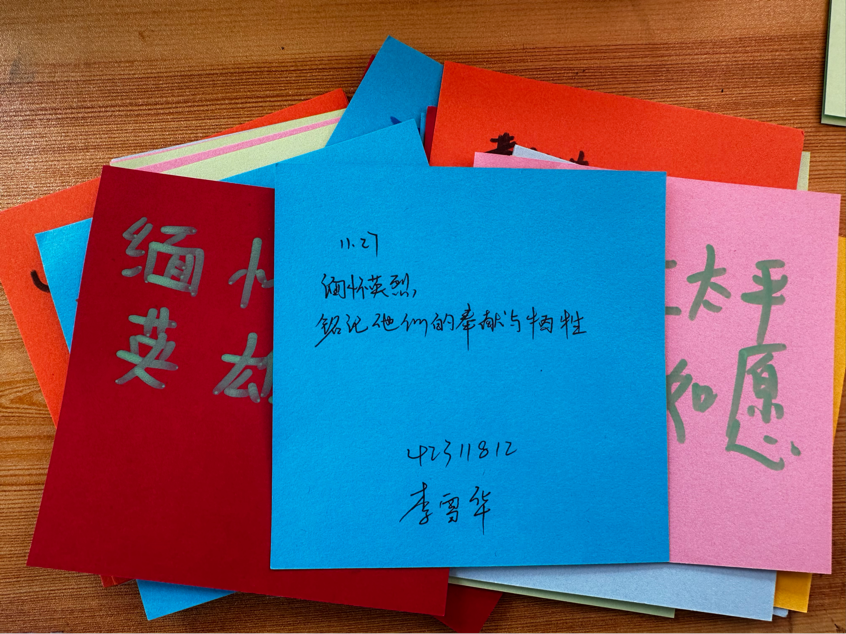 缅怀
英雄
11.27
缅怀英烈,
铭记他们的奉献与牺牲
42311812
李雪华
太平
愿